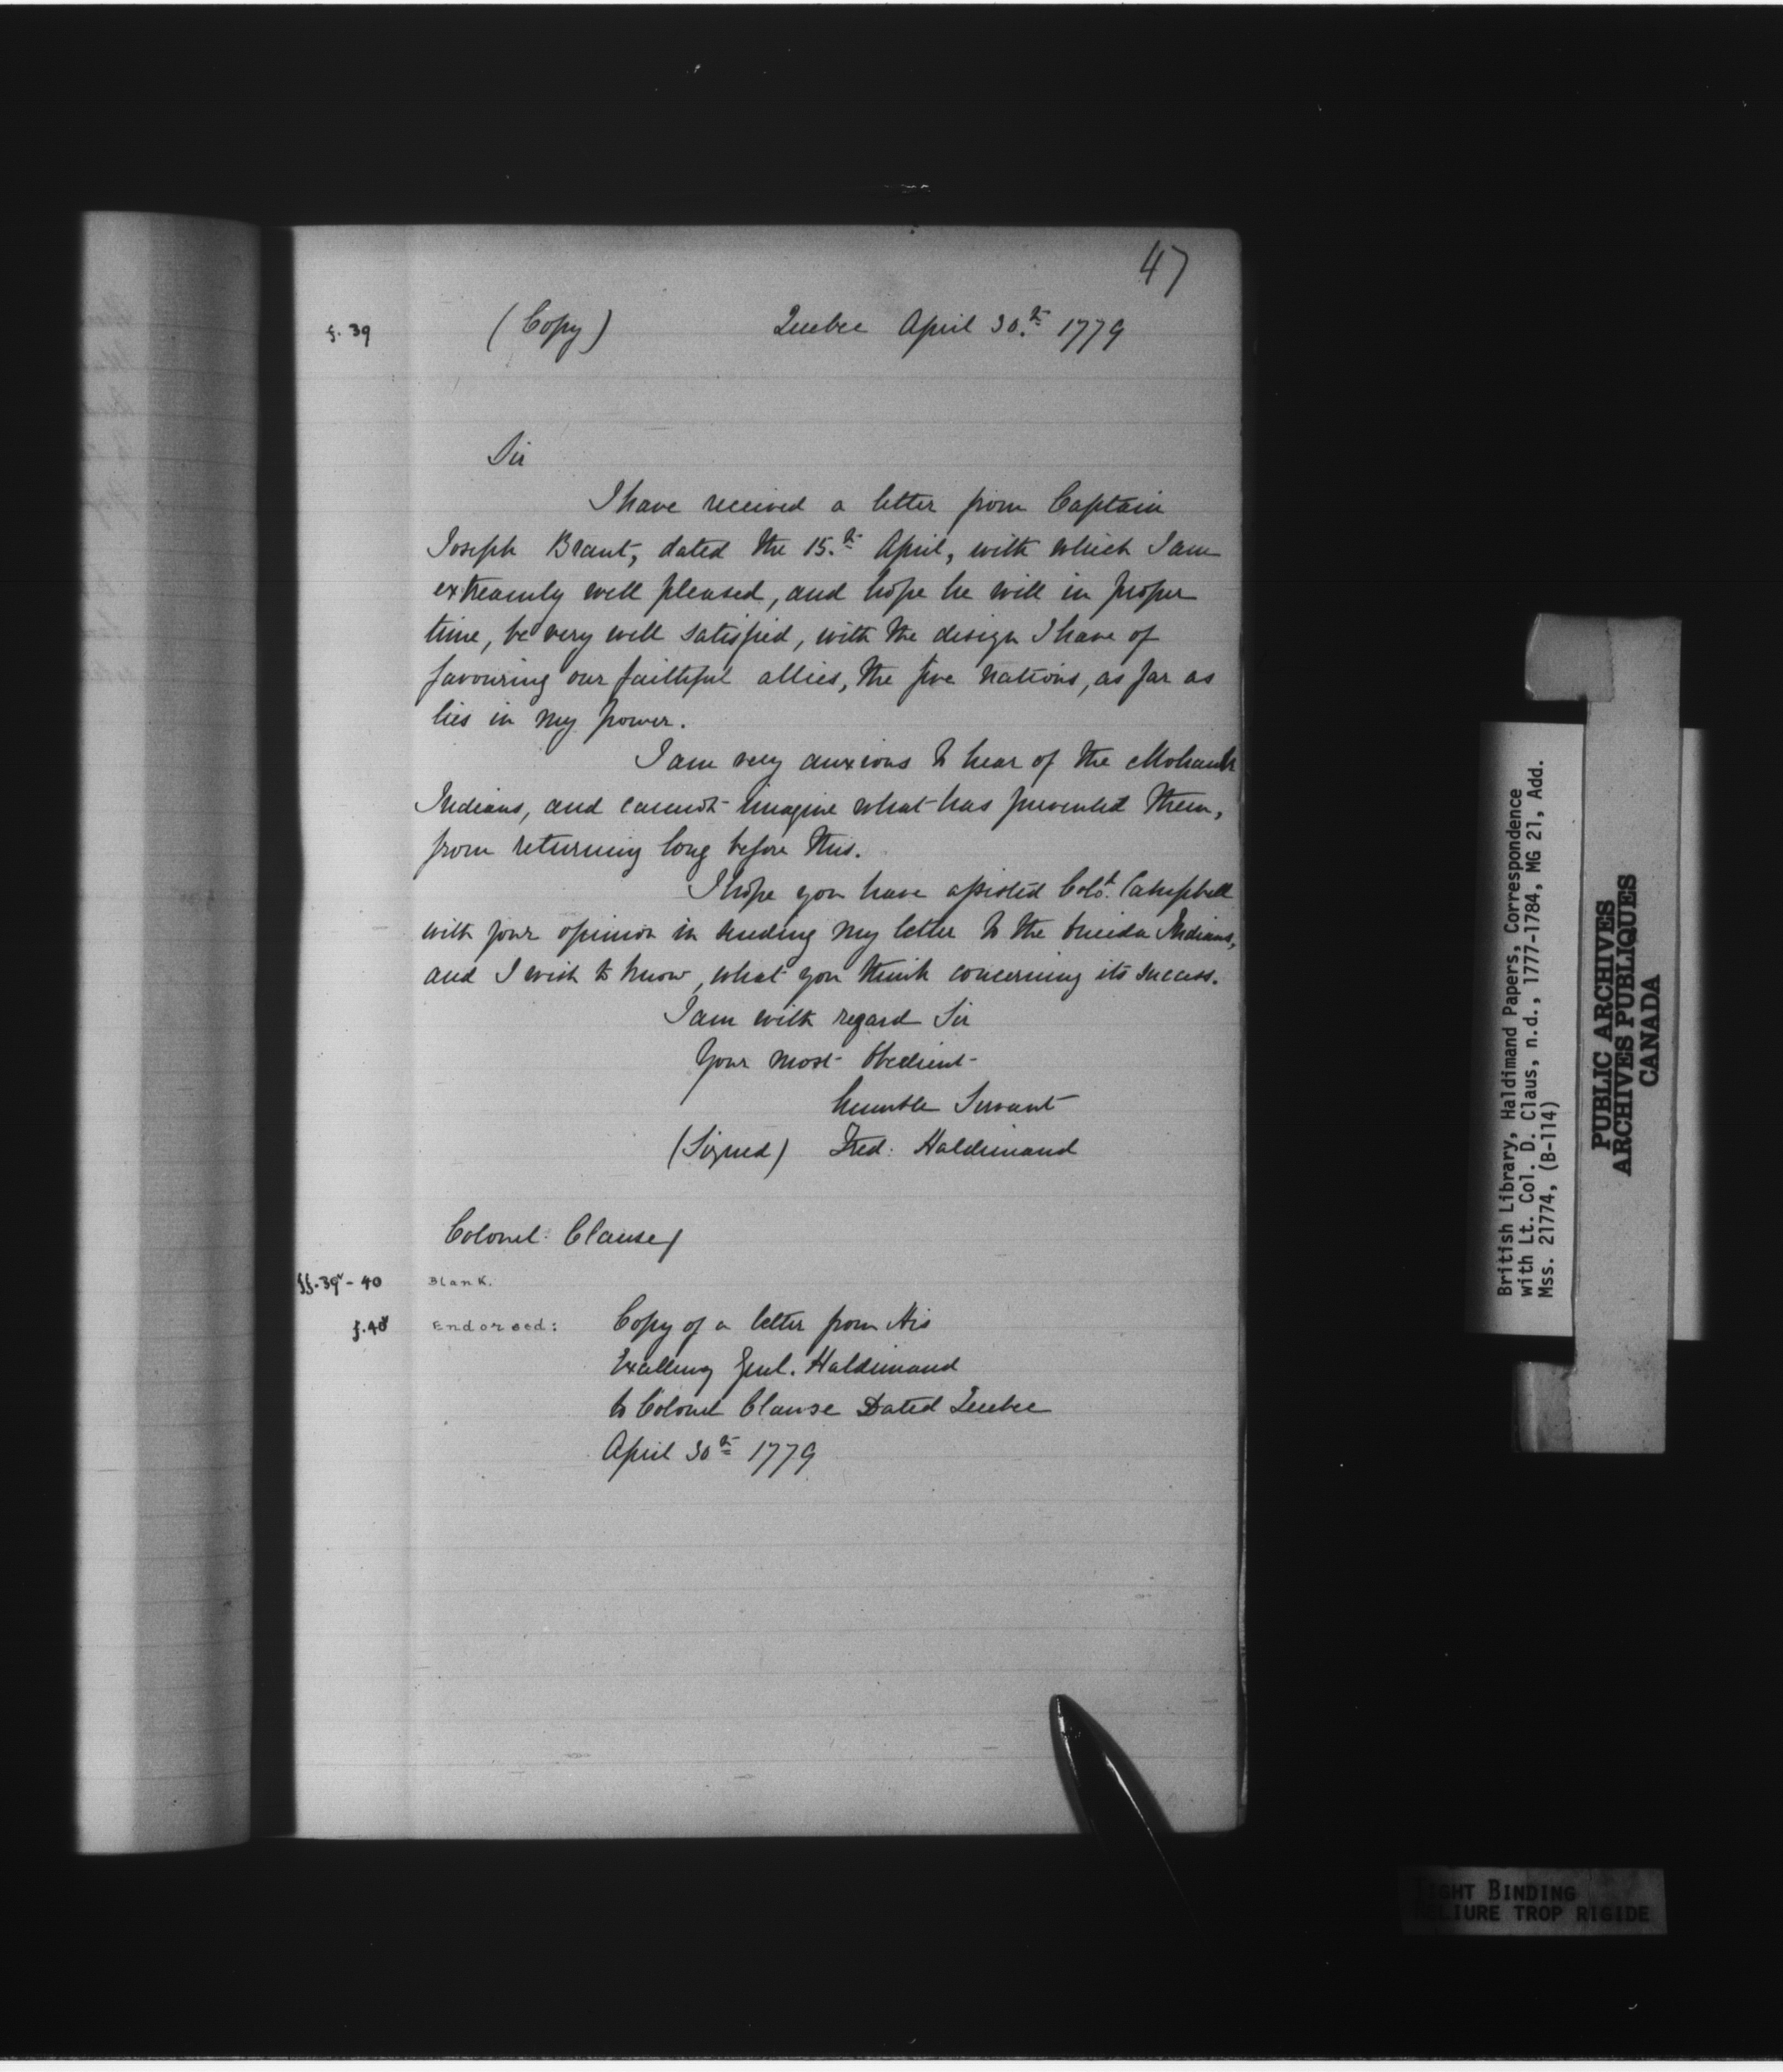 47
f. 39 (Copy) Quebec April 30.th 1779
Sir
I have received a letter from Captain
Joseph Brant, dated the 15.th April, with which I am
extreamly well pleased, and hope he will in proper
time, be very well satisfied, with the design I have of
favouring our faithful allies, the five Nations, as far as
lies in my power.
I am very anxious to hear of the Mohawk
Indians, and cannot imagine what has prevented them,
from returning long before this.
I hope you have assisted Colo. Campbell
with your opinion in sending my letter to the Oneida Indians,
and I wish to know, what you think concerning its success.
I am with regard Sir
Your most Obedient
humble Servant
(Signed) Fred: Haldimand
Colonel Clause
ff. 39v - 40 Blank.
f. 40v Endorsed: Copy of a letter from His
Excellency Genl. Haldimand
to Colonel Clause Dated Quebec
April 30th 1779
British Library, Haldimand Papers, Correspondence
with Lt. Col. D. Claus, n.d., 1777-1784, MG 21, Add.
Mss. 21774, (B-114)
PUBLIC ARCHIVES
ARCHIVES PUBLIQUES
CANADA
TIGHT BINDING
RELIURE TROP RIGIDE